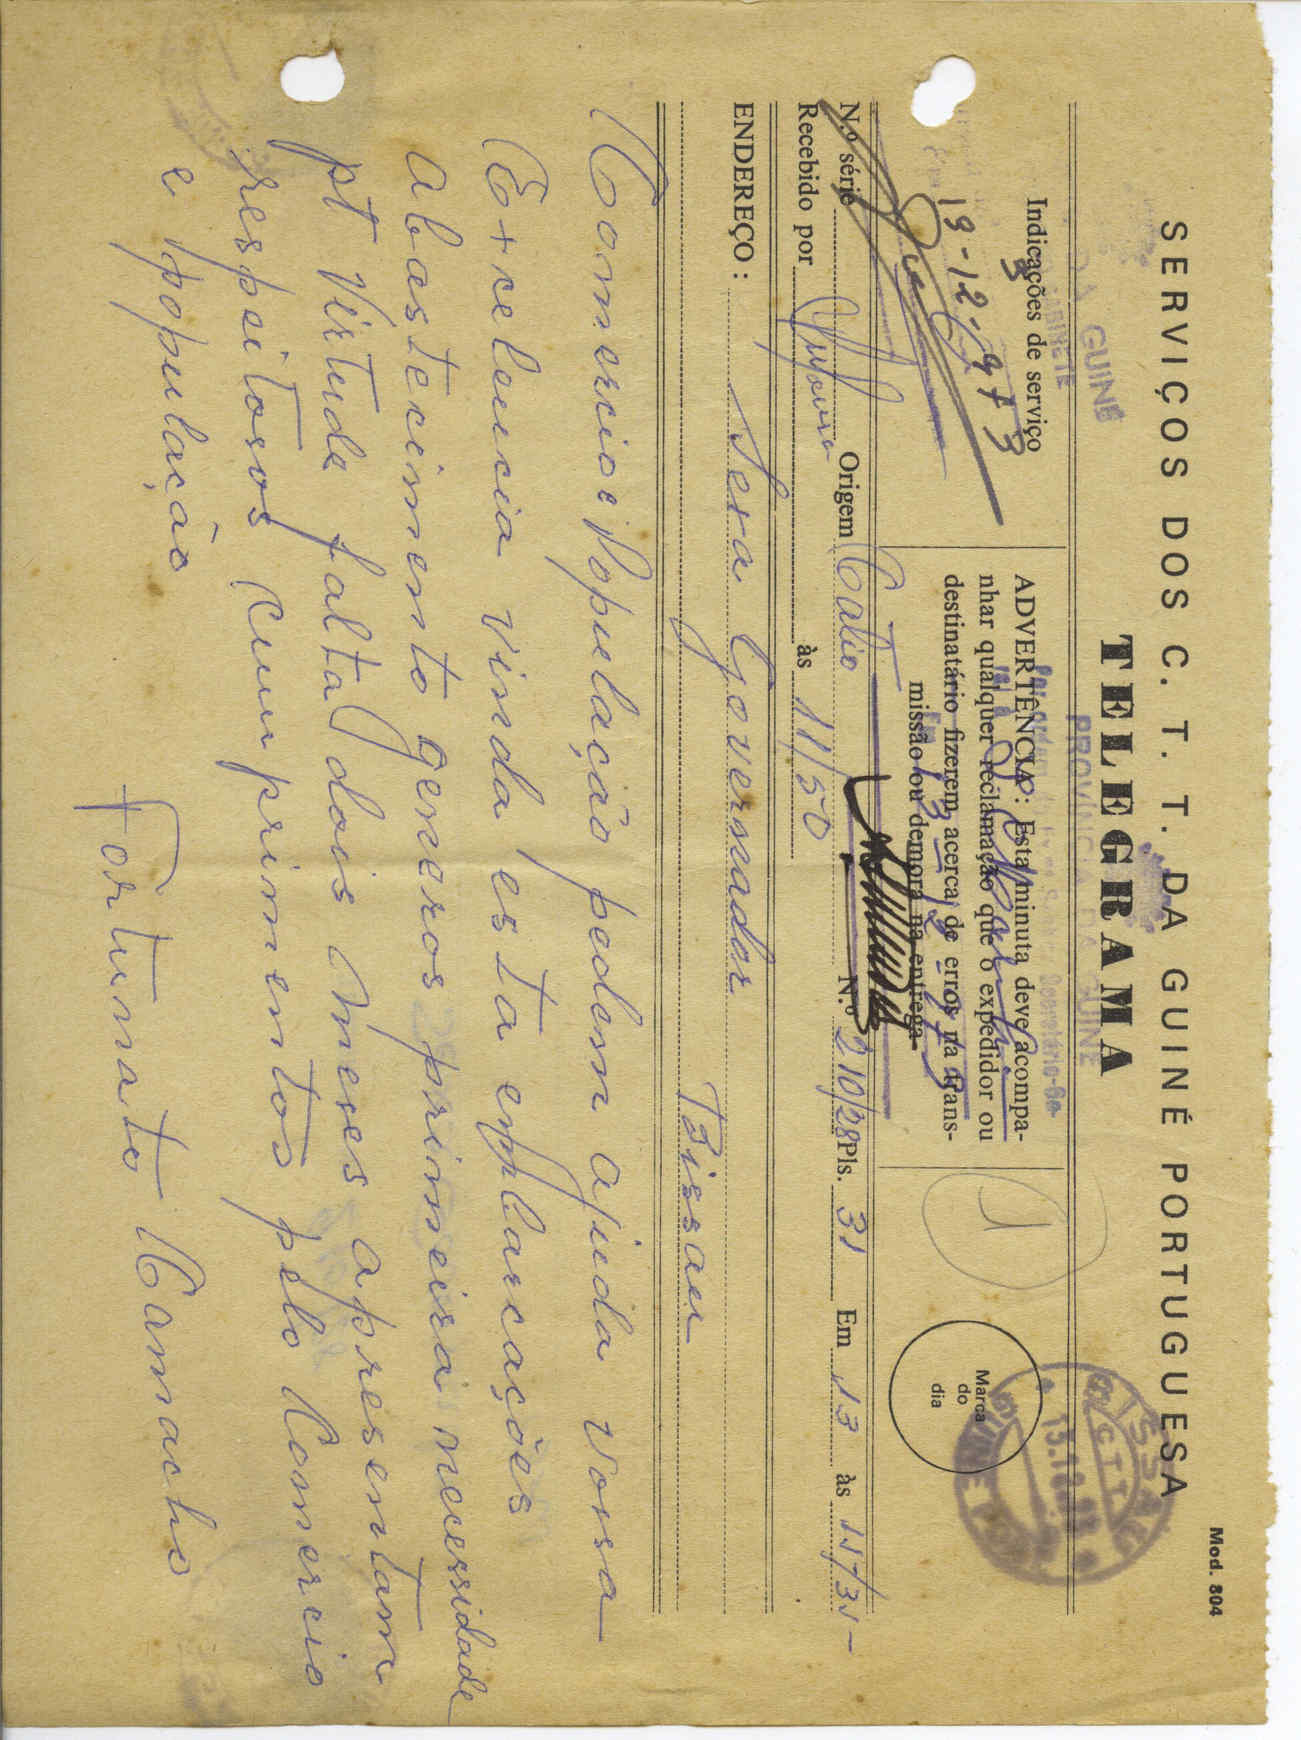 Mod. 804
SERVIÇOS DOS C. T. T. DA GUINÉ PORTUGUESA
TELEGRAMA
Indicações de serviço
13-12-973
ADVERTÊNCIA: Esta minuta deve acompa-
nhar qualquer reclamação que o expedidor ou
destinatário fizerem acerca de erros na trans-
missão ou demora na entrega
Marca
do
dia
GUINÉ
GABINETE
PROVÍNCIA DA GUINÉ
BISSAU
CTT
N.º série Origem Catió N.º 210/28 Pls. 31 Em 13 às 11/31
Recebido por às 11/50
ENDEREÇO: Sexa Governador
Bissau
Comercio e População pedem ajuda vossa
Excelencia vinda esta embarcações
abastecimento generos primeira necessidade
pt Virtude falta dois meses apresentam
respeitosos cumprimentos pelo Comercio
e população
Fortunato Camacho